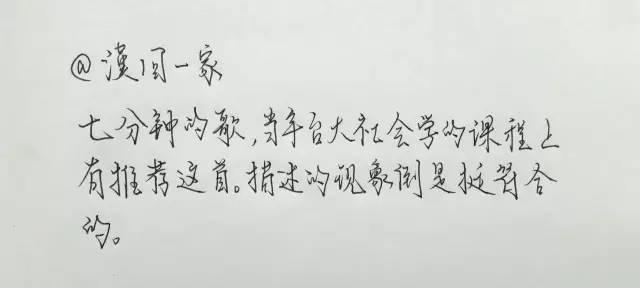 @漢囙一家
七分钟的歌,当年台大社会学的课程上
有推荐这首。描述的现象倒是挺符合
的。